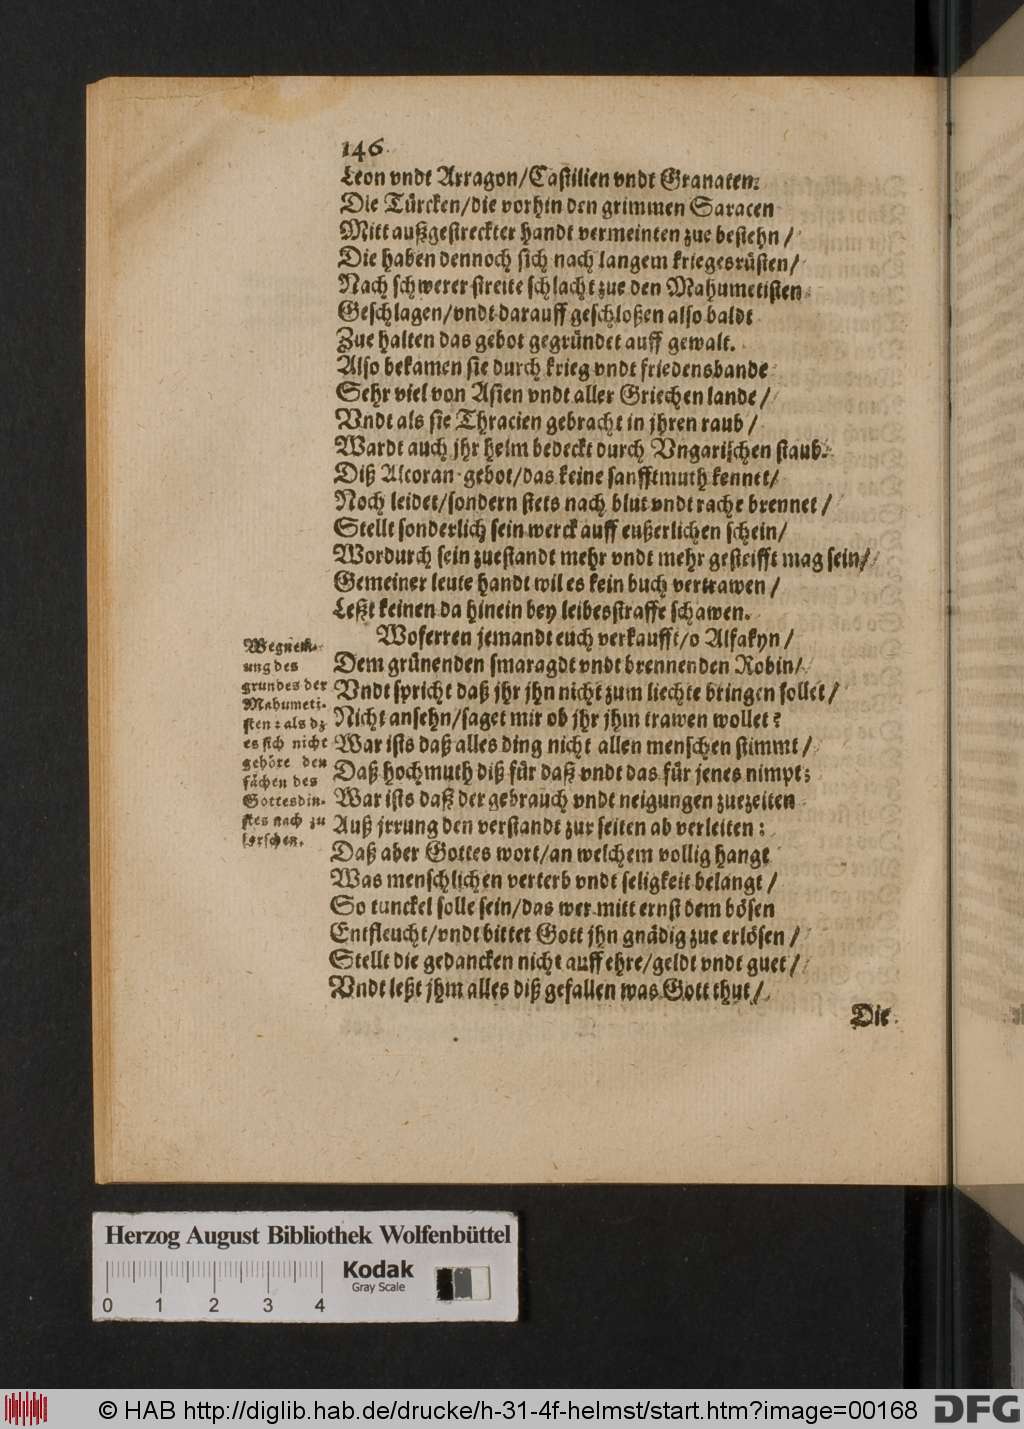 146
Leon vndt Arragon/Castilien vndt Granaten:
Die Türcken/die vorhin den grimmen Saracen
Mitt außgestreckter handt vermeinten zue bestehn/
Die haben dennoch sich nach langem kriegesrüsten/
Nach schwerer streite schlacht zue den Mahumetisten
Geschlagen/vndt darauff geschloßen also baldt
Zue halten das gebot gegründet auff gewalt.
Also bekamen sie durch krieg vndt friedensbande
Sehr viel von Asien vndt aller Griechen lande/
Vndt als sie Thracien gebracht in jhren raub/
Wardt auch jhr helm bedeckt durch Vngarischen staub.
Diß Alcoran gebot/das keine sanfftmuth kennet/
Noch leidet/sondern stets nach blut vndt rache brennet/
Stellt sonderlich sein werck auff eußerlichen schein/
Wordurch sein zuestandt mehr vndt mehr gesteifft mag sein/
Gemeiner leute handt wil es kein buch vertrawen/
Leßt keinen da hinein bey leibesstraffe schawen.
Woferren jemandt euch verkaufft/o Alfakyn/
Dem grünenden smaragdt vndt brennenden Robin/
Vndt spricht daß jhr jhn nicht zum liechte bringen sollet/
Nicht ansehn/saget mir ob jhr jhm trawen wollet?
War ists daß alles ding nicht allen menschen stimmt/
Daß hochmuth diß für daß vndt das für jenes nimpt;
War ists daß der gebrauch vndt neigungen zuezeiten
Auß jrrung den verstandt zur seiten ab verleiten:
Daß aber Gottes wort/an welchem vollig hangt
Was menschlichen verterb vndt seligkeit belangt/
So tunckel solle sein/das wer mitt ernst dem bösen
Entfleucht/vndt bittet Gott jhn gnädig zue erlösen/
Stellt die gedancken nicht auff ehre/geldt vndt guet/
Vndt leßt jhm alles diß gefallen was Gott thut/
Die
Wegnem-
ung des
grundes der
Mahumeti-
sten: als dz
es sich nicht
gehöre den
sächen des
Gottesdin-
stes nach zu
forschen.
Herzog August Bibliothek Wolfenbüttel
Kodak
Gray Scale
0 1 2 3 4
© HAB http://diglib.hab.de/drucke/h-31-4f-helmst/start.htm?image=00168
DFG